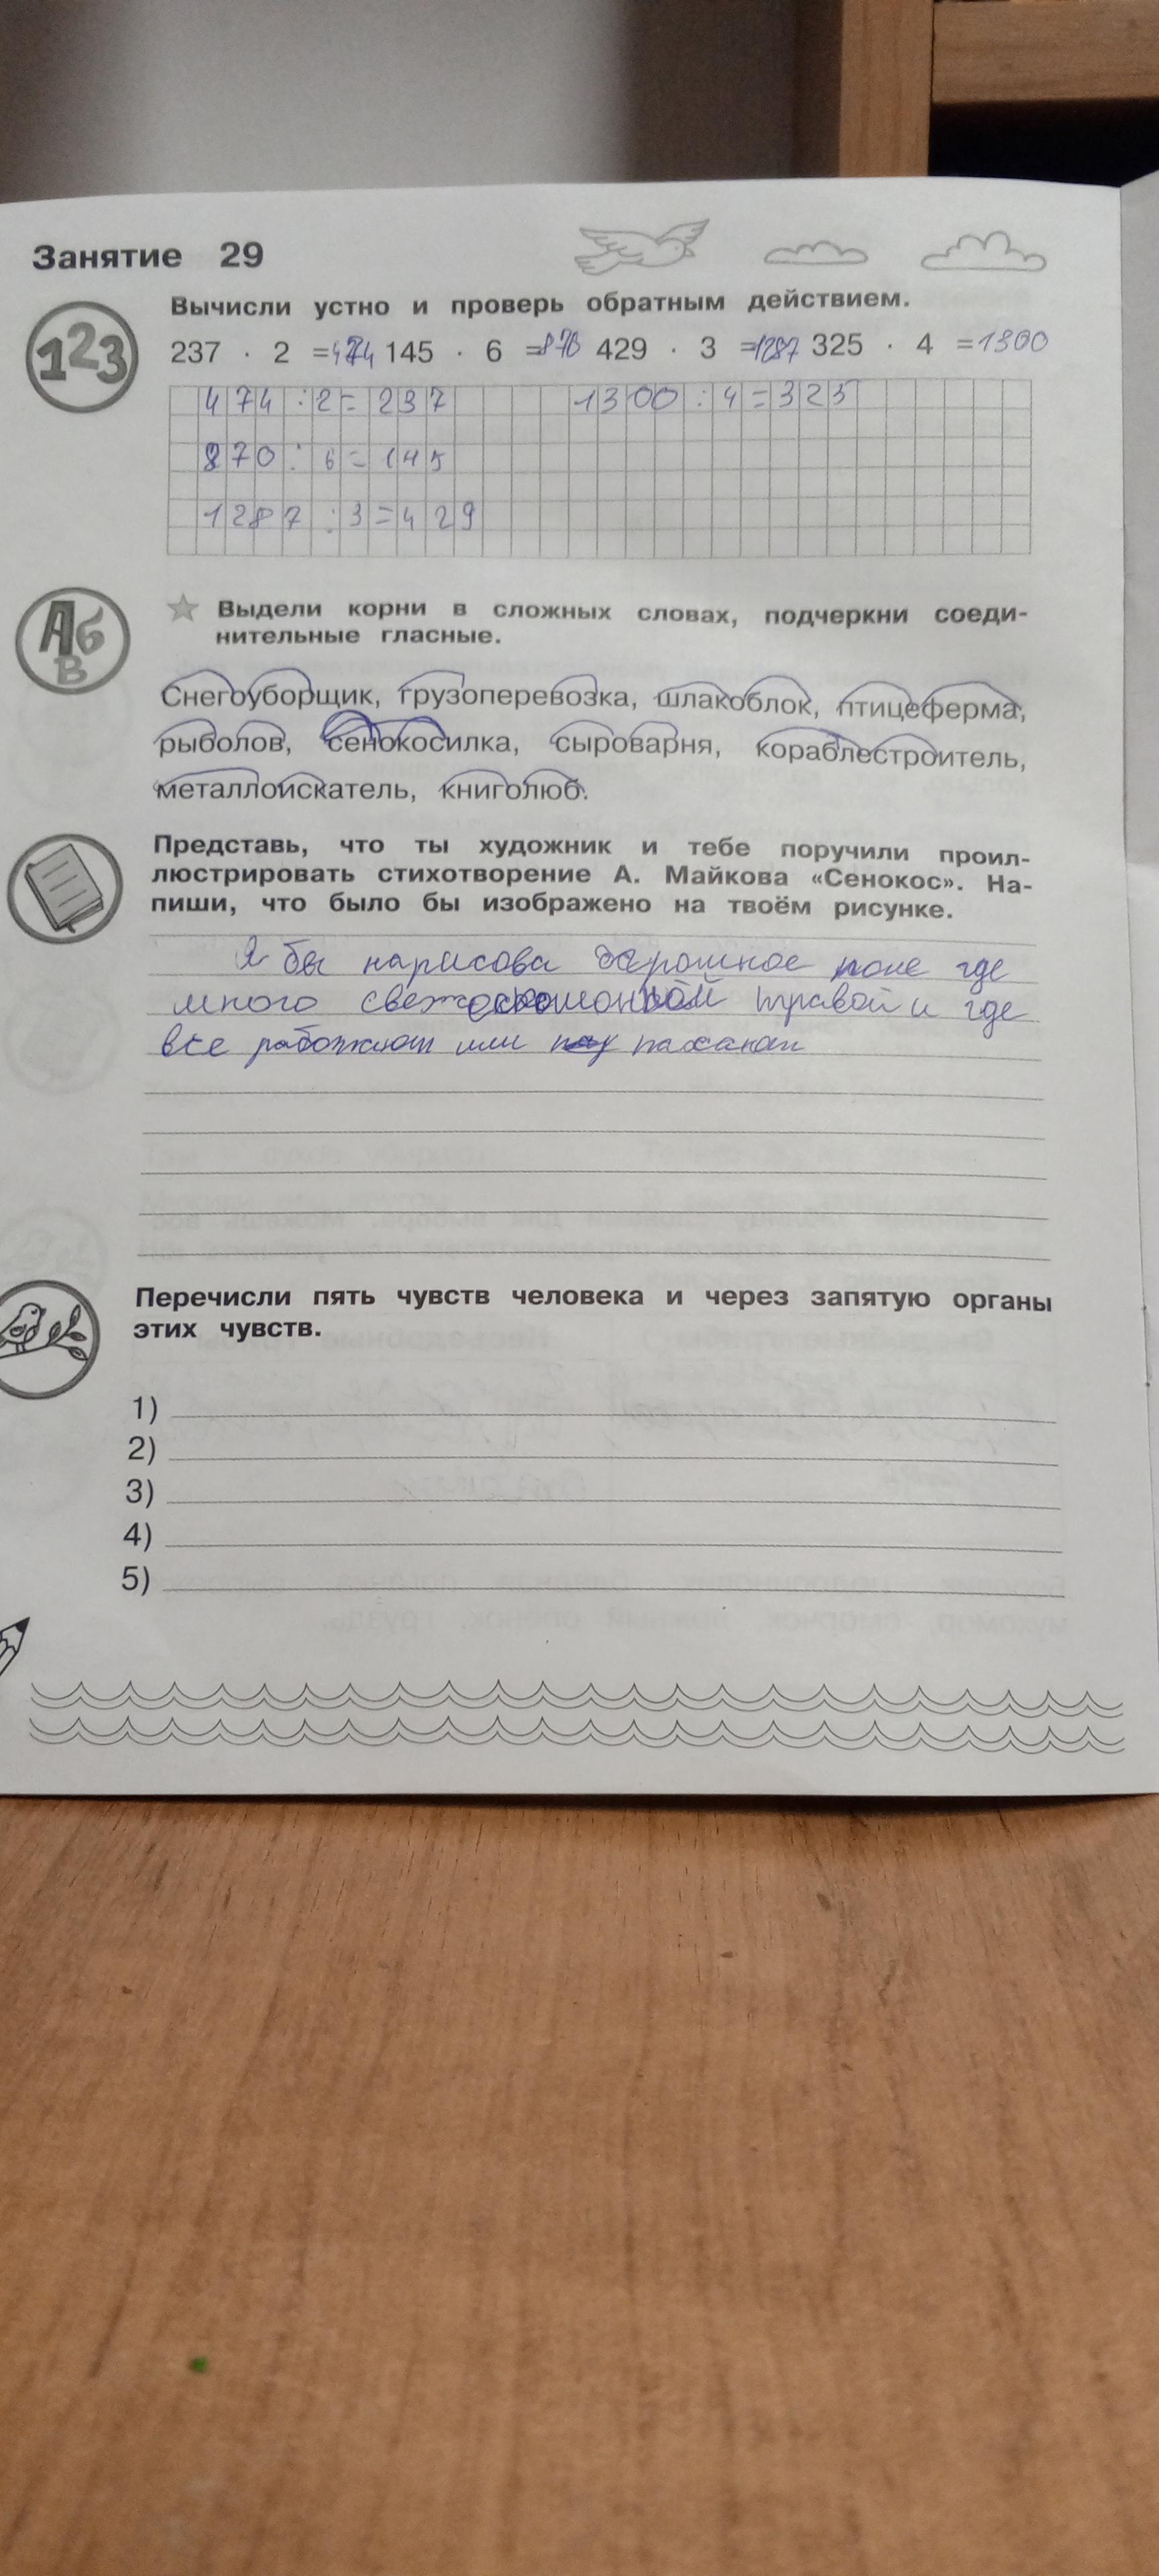 Занятие 29
123
Вычисли устно и проверь обратным действием.
237 · 2 =474 145 · 6 =870 429 · 3 =1287 325 · 4 =1300
474 : 2 = 237 1300 : 4 = 325
870 : 6 = 145
1287 : 3 = 429
АбВ
Выдели корни в сложных словах, подчеркни соеди-
нительные гласные.
Снегоуборщик, грузоперевозка, шлакоблок, птицеферма,
рыболов, сенокосилка, сыроварня, кораблестроитель,
металлоискатель, книголюб.
Представь, что ты художник и тебе поручили проил-
люстрировать стихотворение А. Майкова «Сенокос». На-
пиши, что было бы изображено на твоём рисунке.
Я бы нарисова поле где
много травой и где
все работают или пахают
Перечисли пять чувств человека и через запятую органы
этих чувств.
1)
2)
3)
4)
5)